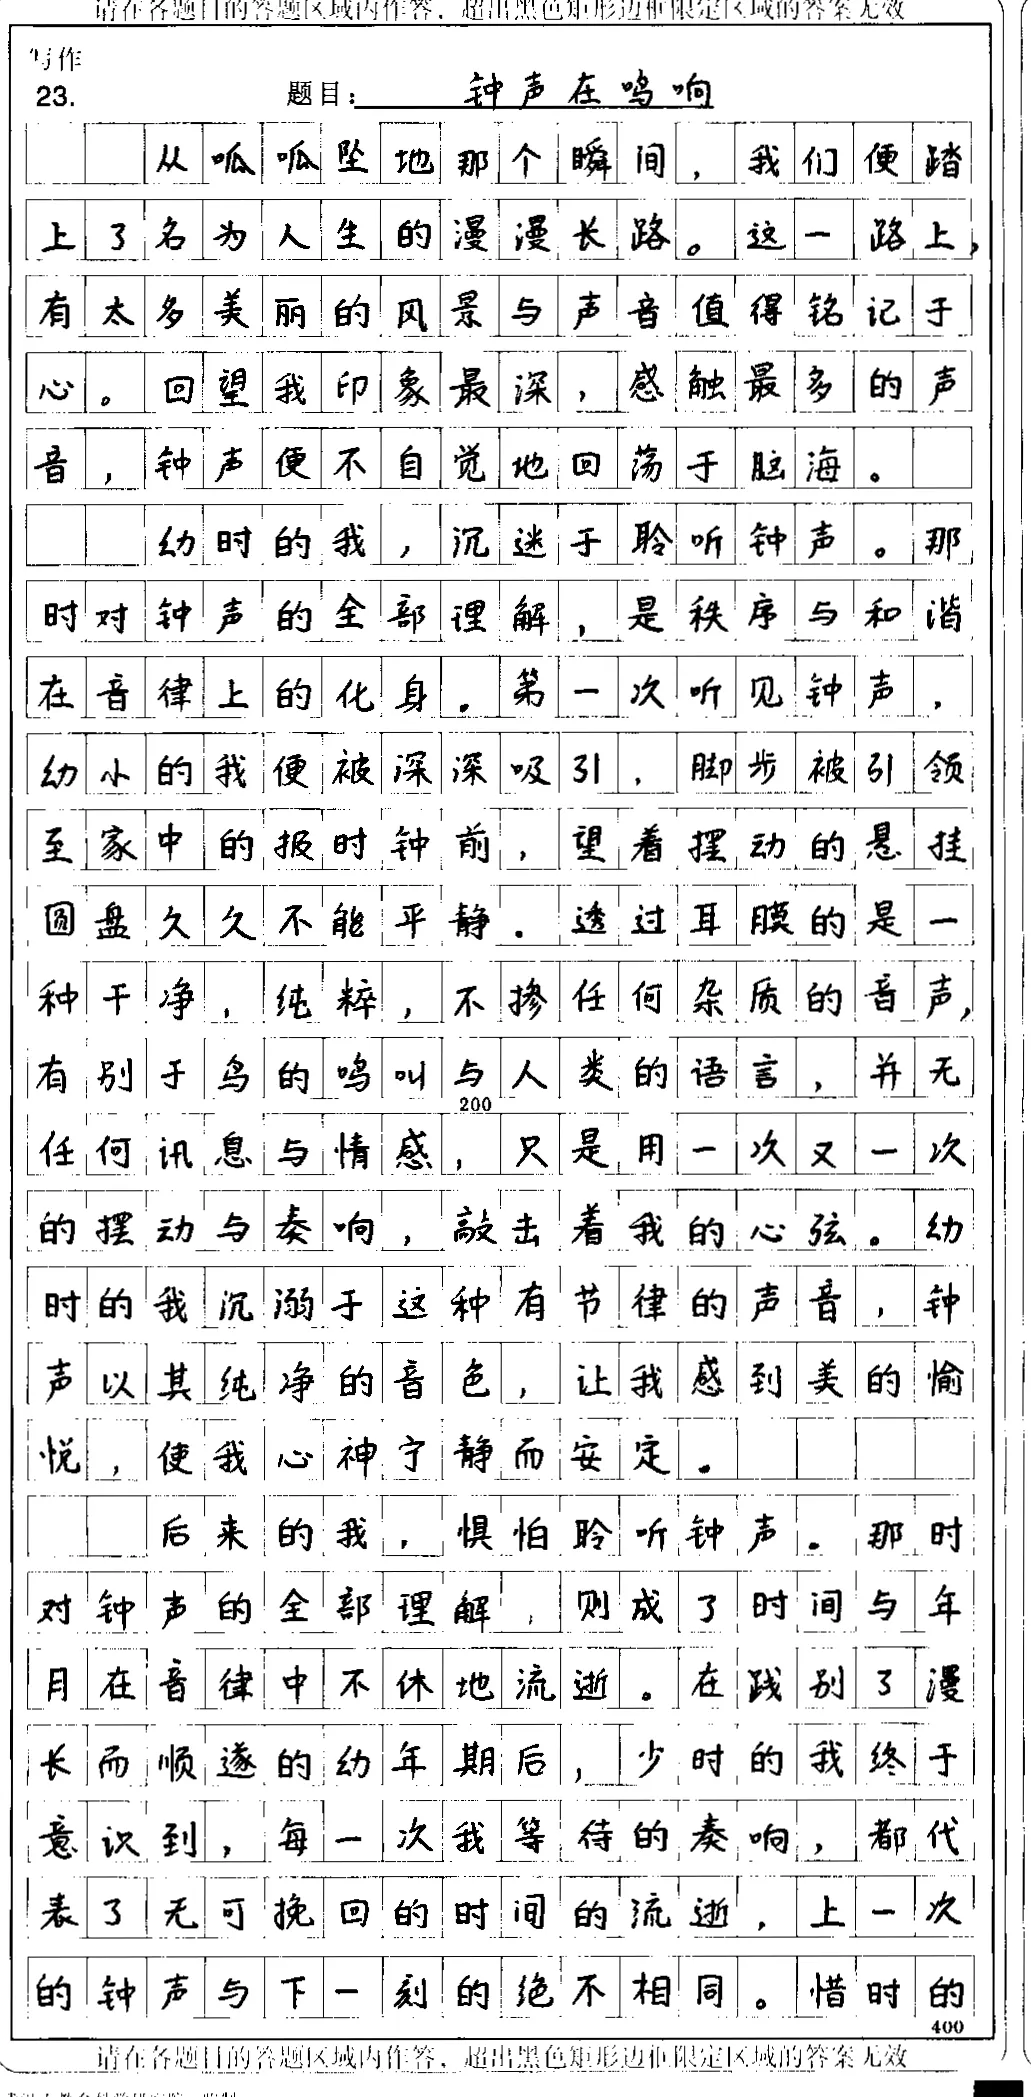 请在各题目的答题区域内作答，超出黑色矩形边框限定区域的答案无效
写作
23.
题目：钟声在鸣响
从呱呱坠地那个瞬间，我们便踏
上了名为人生的漫漫长路。这一路上，
有太多美丽的风景与声音值得铭记于
心。回望我印象最深，感触最多的声
音，钟声便不自觉地回荡于脑海。
幼时的我，沉迷于聆听钟声。那
时对钟声的全部理解，是秩序与和谐
在音律上的化身。第一次听见钟声，
幼小的我便被深深吸引，脚步被引领
至家中的报时钟前，望着摆动的悬挂
圆盘久久不能平静。透过耳膜的是一
种干净，纯粹，不掺任何杂质的音声，
有别于鸟的鸣叫与人类的语言，并无
200
任何讯息与情感，只是用一次又一次
的摆动与奏响，敲击着我的心弦。幼
时的我沉溺于这种有节律的声音，钟
声以其纯净的音色，让我感到美的愉
悦，使我心神宁静而安定。
后来的我，惧怕聆听钟声。那时
对钟声的全部理解，则成了时间与年
月在音律中不休地流逝。在践别了漫
长而顺遂的幼年期后，少时的我终于
意识到，每一次我等待的奏响，都代
表了无可挽回的时间的流逝，上一次
的钟声与下一刻的绝不相同。惜时的
400
请在各题目的答题区域内作答，超出黑色矩形边框限定区域的答案无效